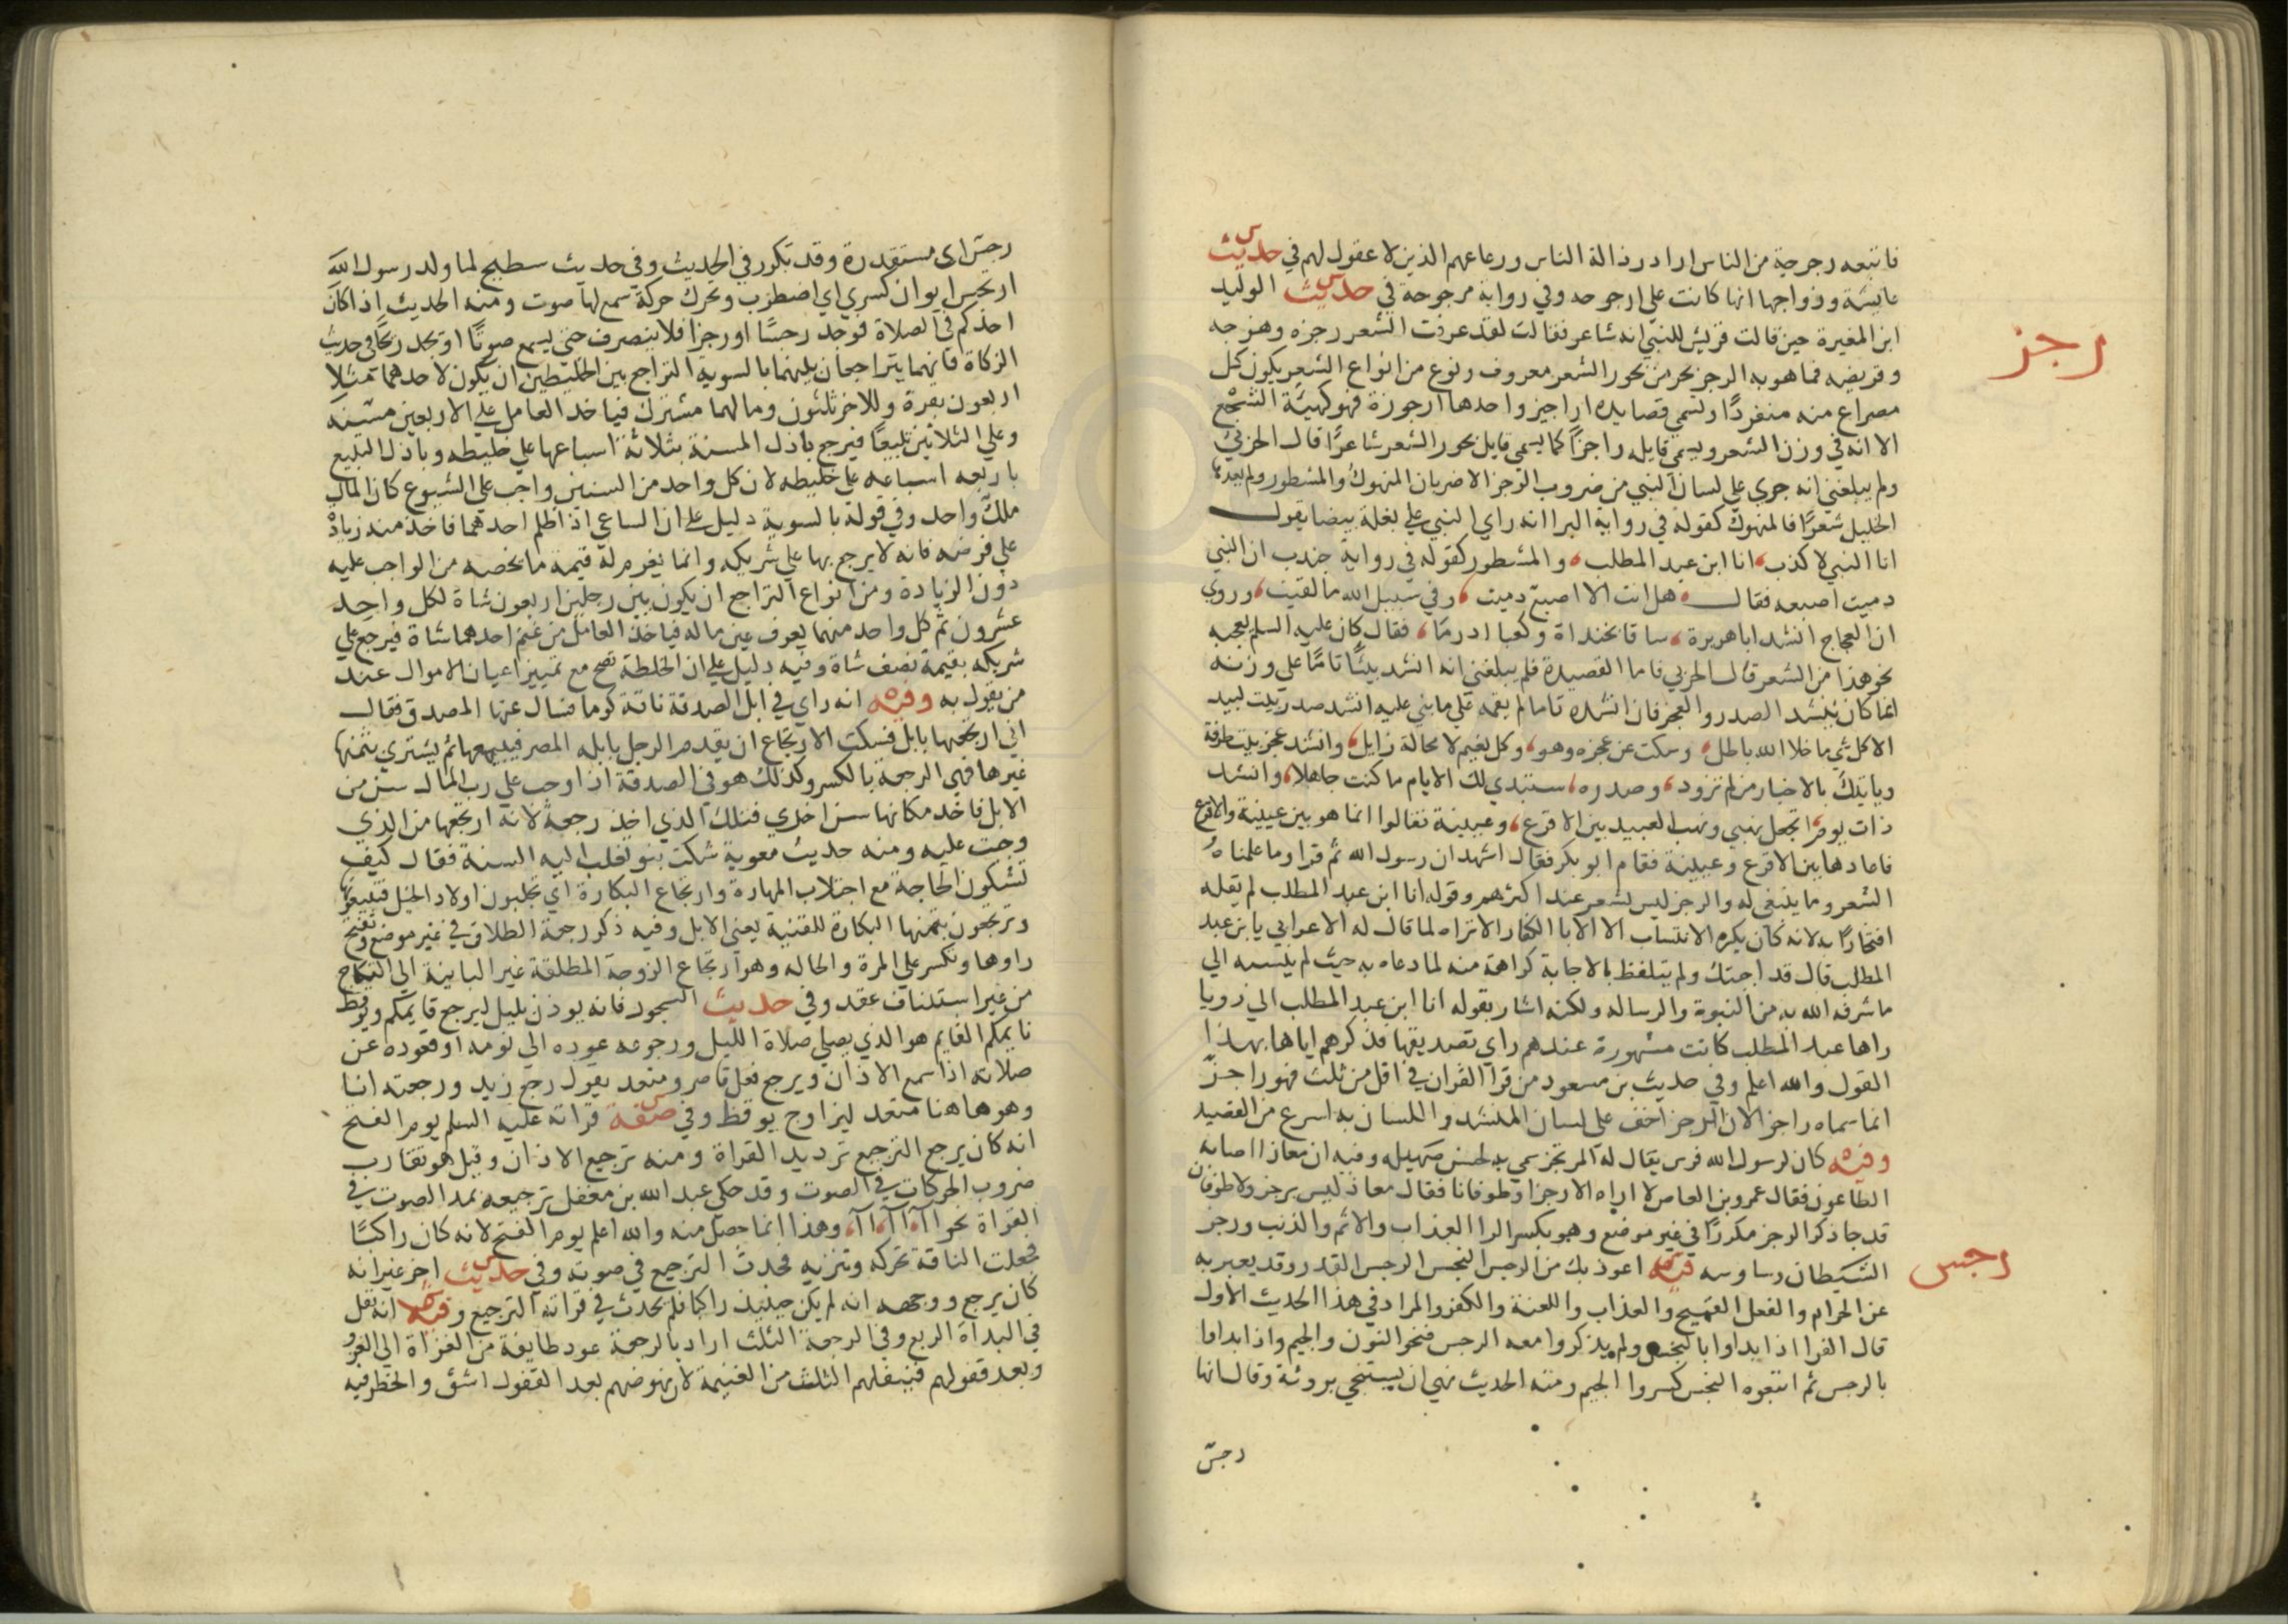 فاتبعه رجرجة من الناس اراد رذالة الناس ورعاعهم الذين لا عقول لهم في حديث
عايشة وزواجها انها كانت علي ارجوحه وفي رواية مرجوحة في حديث الوليد
رجز
ابن المغيرة حين قالت قريش للنبي انه شاعر فقالت لقد عرفت الشعر رجزه وهزجه
وقريضه فما هو به الرجز بحر من بحور الشعر معروف ونوع من انواع الشعر يكون كل
مصراع منه منفردًا وتسمي قصايده اراجيز واحدها ارجوزة فهو كهيئة السجع
الا انه في وزن الشعر ويسمي قايله راجزًا كما يسمي قايل بحور الشعر شاعرًا قال الحربي
ولم يبلغني انه جري علي لسان النبي من ضروب الرجز الا ضربان المنهوك والمشطور ولم يعدهما
الخليل شعرًا فالمنهوك كقوله في رواية البرا انه راي النبي علي بغلة بيضا يقول
انا النبي لا كذب، انا ابن عبد المطلب، والمشطور كقوله في رواية جندب ان النبي
دميت اصبعه فقال هل انت الا اصبع دميت، وفي سبيل الله ما لقيت، وروي
ان العجاج انشد ابا هريرة، ساقا بخنداة وكعبا ادرما، فقال كان عليه السلم يعجبه
نحو هذا من الشعر قال الحربي فاما القصيدة فلم يبلغني انه انشد بيتًا تامًا علي وزنه
انما كان ينشد الصدر او العجز فان انشده تاما لم يقمه علي ما بني عليه انشد صدر بيت لبيد
الا كل شي ما خلا الله باطل، وسكت عن عجزه وهو، وكل نعيم لا محالة زايل، وانشد عجز بيت طرفة
وياتيك بالاخبار من لم تزود، وصدره، ستبدي لك الايام ما كنت جاهلا، وانشد
ذات يوم، اتجعل نهبي ونهب العبيد بين الاقرع، وعيينة فقالوا انما هو بين عيينة والاقرع
فاعادها بين الاقرع وعيينة فقام ابو بكر فقال اشهد ان رسول الله ثم قرا وما علمناه
الشعر وما ينبغي له والرجز ليس بشعر عند اكثرهم وقوله انا ابن عبد المطلب لم يقله
افتخارًا به لانه كان يكره الانتساب الا الابا الكفار الا تراه لما قال له الاعرابي يا بن عبد
المطلب قال قد اجبتك ولم يتلفظ بالاجابة كراهة منه لما دعاه به حيث لم ينسبه الي
ما شرفه الله به من النبوة والرساله ولكنه اشار بقوله انا ابن عبد المطلب الي رويا
راها عبد المطلب كانت مشهورة عندهم راي تصديقها فذكرهم اياها بهذا
القول والله اعلم وفي حديث بن مسعود من قرا القران في اقل من ثلث فهو راجز
انما سماه راجز الان الرجز اخف علي لسان المنشد واللسان به اسرع من القصيد
وفيه كان لرسول الله فرس يقال له المرتجز سمي به لحسن صهيله وفيه ان معاذا اصابه
الطاعون فقال عمرو بن العاص لا اراه الا رجزا وطوفانا فقال معاذ ليس برجز ولا طوفان
قد جا ذكر الرجز مكررًا في غير موضع وهو بكسر الرا العذاب والاثم والذنب ورجز
رجس
الشيطان وساوسه فيه اعوذ بك من الرجس النجس الرجس القذر وقد يعبر به
عن الحرام والفعل القبيح والعذاب واللعنة والكفر والمراد في هذا الحديث الاول
قال الفرا اذا بداوا بالنجس ولم يذكروا معه الرجس فتحو النون والجيم واذا بداوا
بالرجس ثم اتبعوه النجس كسروا الجيم ومنه الحديث نهي ان يستنجي بروثة وقال انها
رجس
رجس اي مستقدرة وقد تكرر في الحديث وفي حديث سطيح لما ولد رسول الله
ارتجس ايوان كسري اي اضطرب وتحرك حركة سمع لها صوت ومنه الحديث اذا كان
احدكم في الصلاة فوجد رجسًا او رجزا فلا ينصرف حتي يسمع صوتًا او يجد ريحًا في حديث
الزكاة فانهما يتراجعان بينهما بالسوية التراجع بين الخليطين ان يكون لاحدهما مثلا
اربعون بقرة وللاخر ثلثون ومالهما مشترك فياخذ العامل علي الاربعين مسنه
وعلي الثلاثين تبيعًا فيرجع باذل المسنة بثلاثة اسباعها علي خليطه وباذل التبيع
باربعه اسباعه علي خليطه لان كل واحد من السنين واجب علي الشيوع كان المال
ملك واحد وفي قوله بالسوية دليل علي ان الساعي اذا ظلم احدهما فاخذ منه زيادة
علي فرضه فانه لا يرجع بها علي شريكه وانما يغرم له قيمة ما يخصه من الواجب عليه
دون الزيادة ومن انواع التراجع ان يكون بين رجلين اربعون شاة لكل واحد
عشرون ثم كل واحد منهما يعرف عين ماله فياخذ العامل من غنم احدهما شاة فيرجع علي
شريكه بقيمة نصف شاة وفيه دليل علي ان الخلطة تصح مع تمييز اعيان الاموال عند
من يقول به وفيه انه راي في ابل الصدقة ناقة كوما فسال عنها المصدق فقال
اني ارتجعتها بابل فسكت الارتجاع ان يقدم الرجل بابله المصر فيبيعها ثم يشتري بثمنها
غيرها فهي الرجعة بالكسر وكذلك هو في الصدقة اذا وجب علي رب المال سن من
الابل فاخذ مكانها سن اخري فتلك الذي اخذ رجعة لانه ارتجعها من الذي
وجبت عليه ومنه حديث معوية شكت بنو تغلب اليه السنة فقال كيف
تشكون الحاجة مع اجتلاب المهارة وارتجاع البكارة اي تجلبون اولاد الخيل فتبيعونها
وترتجعون بثمنها البكارة للقنية يعني الابل وفيه ذكر رجعة الطلاق في غير موضع وتفتح
راوها وتكسر علي المرة والحاله وهو ارتجاع الزوجة المطلقة غير الباينة الي النكاح
من غير استئناف عقد وفي حديث السحور فانه يوذن بليل ليرجع قايمكم ويوقظ
نايمكم القايم هو الذي يصلي صلاة الليل ورجوعه عوده الي نومه او قعوده عن
صلاته اذا سمع الاذان ويرجع فعل قاصر ومتعد يقول رجع زيد ورجعته انا
وهو هاهنا متعد ليزاوج يوقظ وفي صفة قراته عليه السلم يوم الفتح
انه كان يرجع الترجيع ترديد القراة ومنه ترجيع الاذان وقيل هو تقارب
ضروب الحركات في الصوت وقد حكي عبد الله بن مغفل ترجيعه بمد الصوت في
القراة نحو اآ، اآ، اآ، وهذا انما حصل منه والله اعلم يوم الفتح لانه كان راكبًا
فجعلت الناقة تحركه وتنزيه فحدث الترجيع في صوته وفي حديث اخر غير انه
كان يرجع ووجهه انه لم يكن حينيذ راكبا فلم يحدث في قراته الترجيع وفيه انه نفل
في البداة الربع وفي الرجعة الثلث اراد بالرجعة عود طايفة من الغزاة الي الغزو
وبعد قفولهم فينفلهم الثلث من الغنيمة لان نهوضهم بعد القفول اشق والخطر فيه